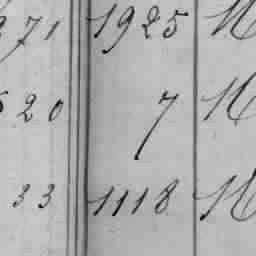 271 1925 M
520 7 M
33 1118 M